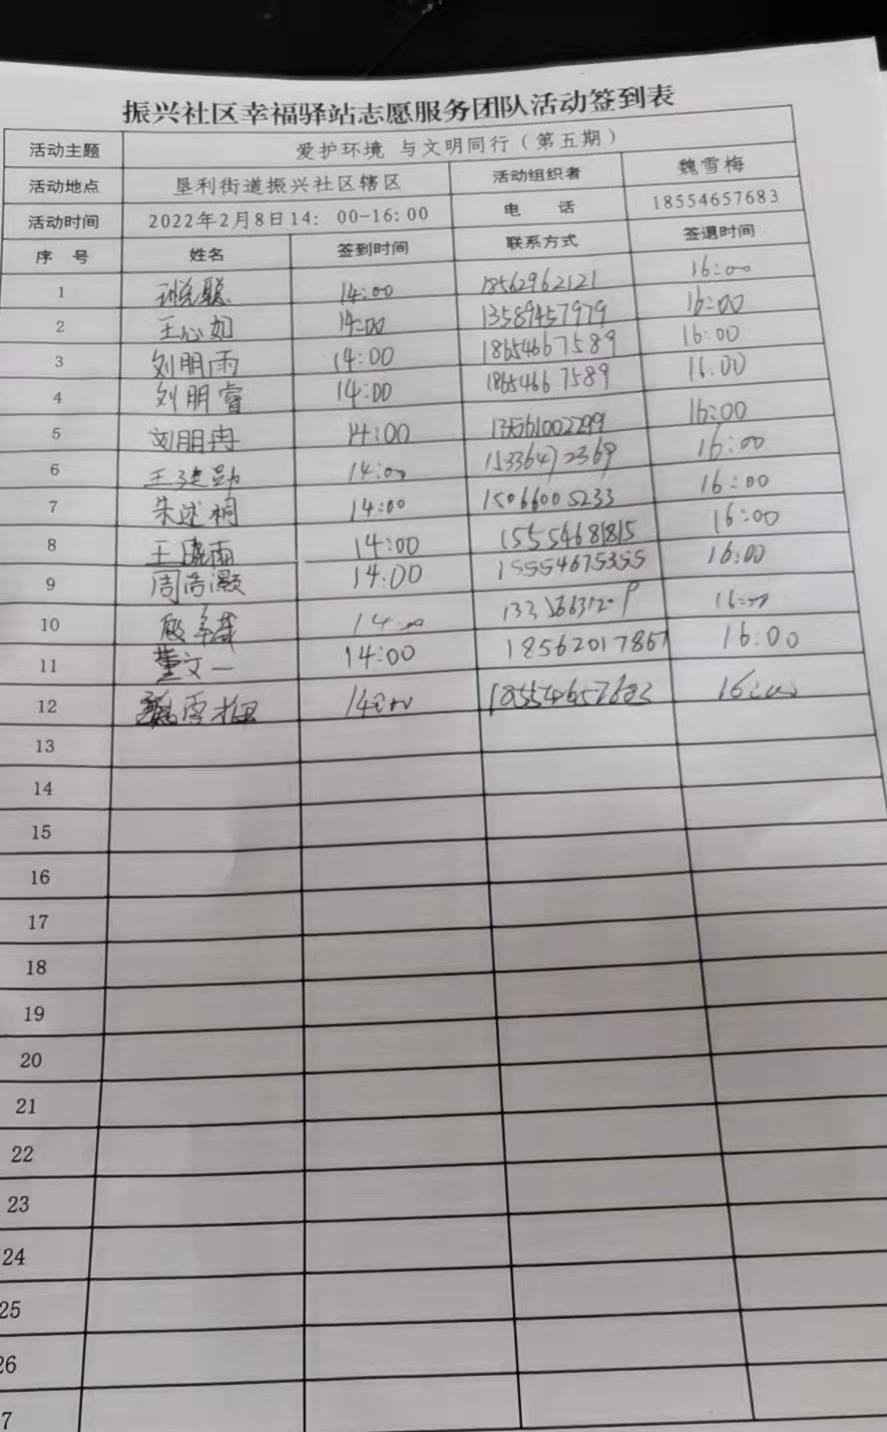 振兴社区幸福驿站志愿服务团队活动签到表
活动主题 爱护环境 与文明同行（第五期）
活动地点 垦利街道振兴社区辖区 活动组织者 魏雪梅
活动时间 2022年2月8日14：00-16：00 电 话 18554657683
序 号 姓名 签到时间 联系方式 签退时间
1 14:00 18562962121 16:00
2 王心如 14:00 13589457979 16:00
3 刘朋雨 14:00 18654667589 16:00
4 刘朋睿 14:00 18654667589 16:00
5 刘朋冉 14:00 13561002299 16:00
6 14:00 15336472369 16:00
7 朱述祠 14:00 15066005233 16:00
8 王晓雨 14:00 15554681815 16:00
9 周浩灏 14:00 15554675355 16:00
10 14:00 16:00
11 董文一 14:00 18562017867 16:00
12 魏雪梅 14:00 18554657683 16:00
13
14
15
16
17
18
19
20
21
22
23
24
25
26
7